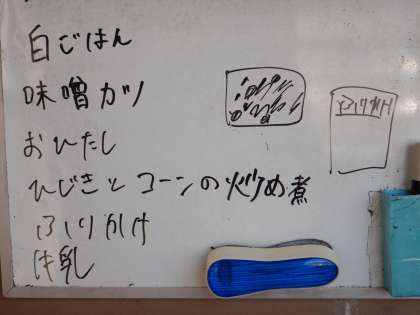 白ごはん
味噌カツ
おひたし
ひじきとコーンの炒め煮
ふりかけ
牛乳
ふりかけ